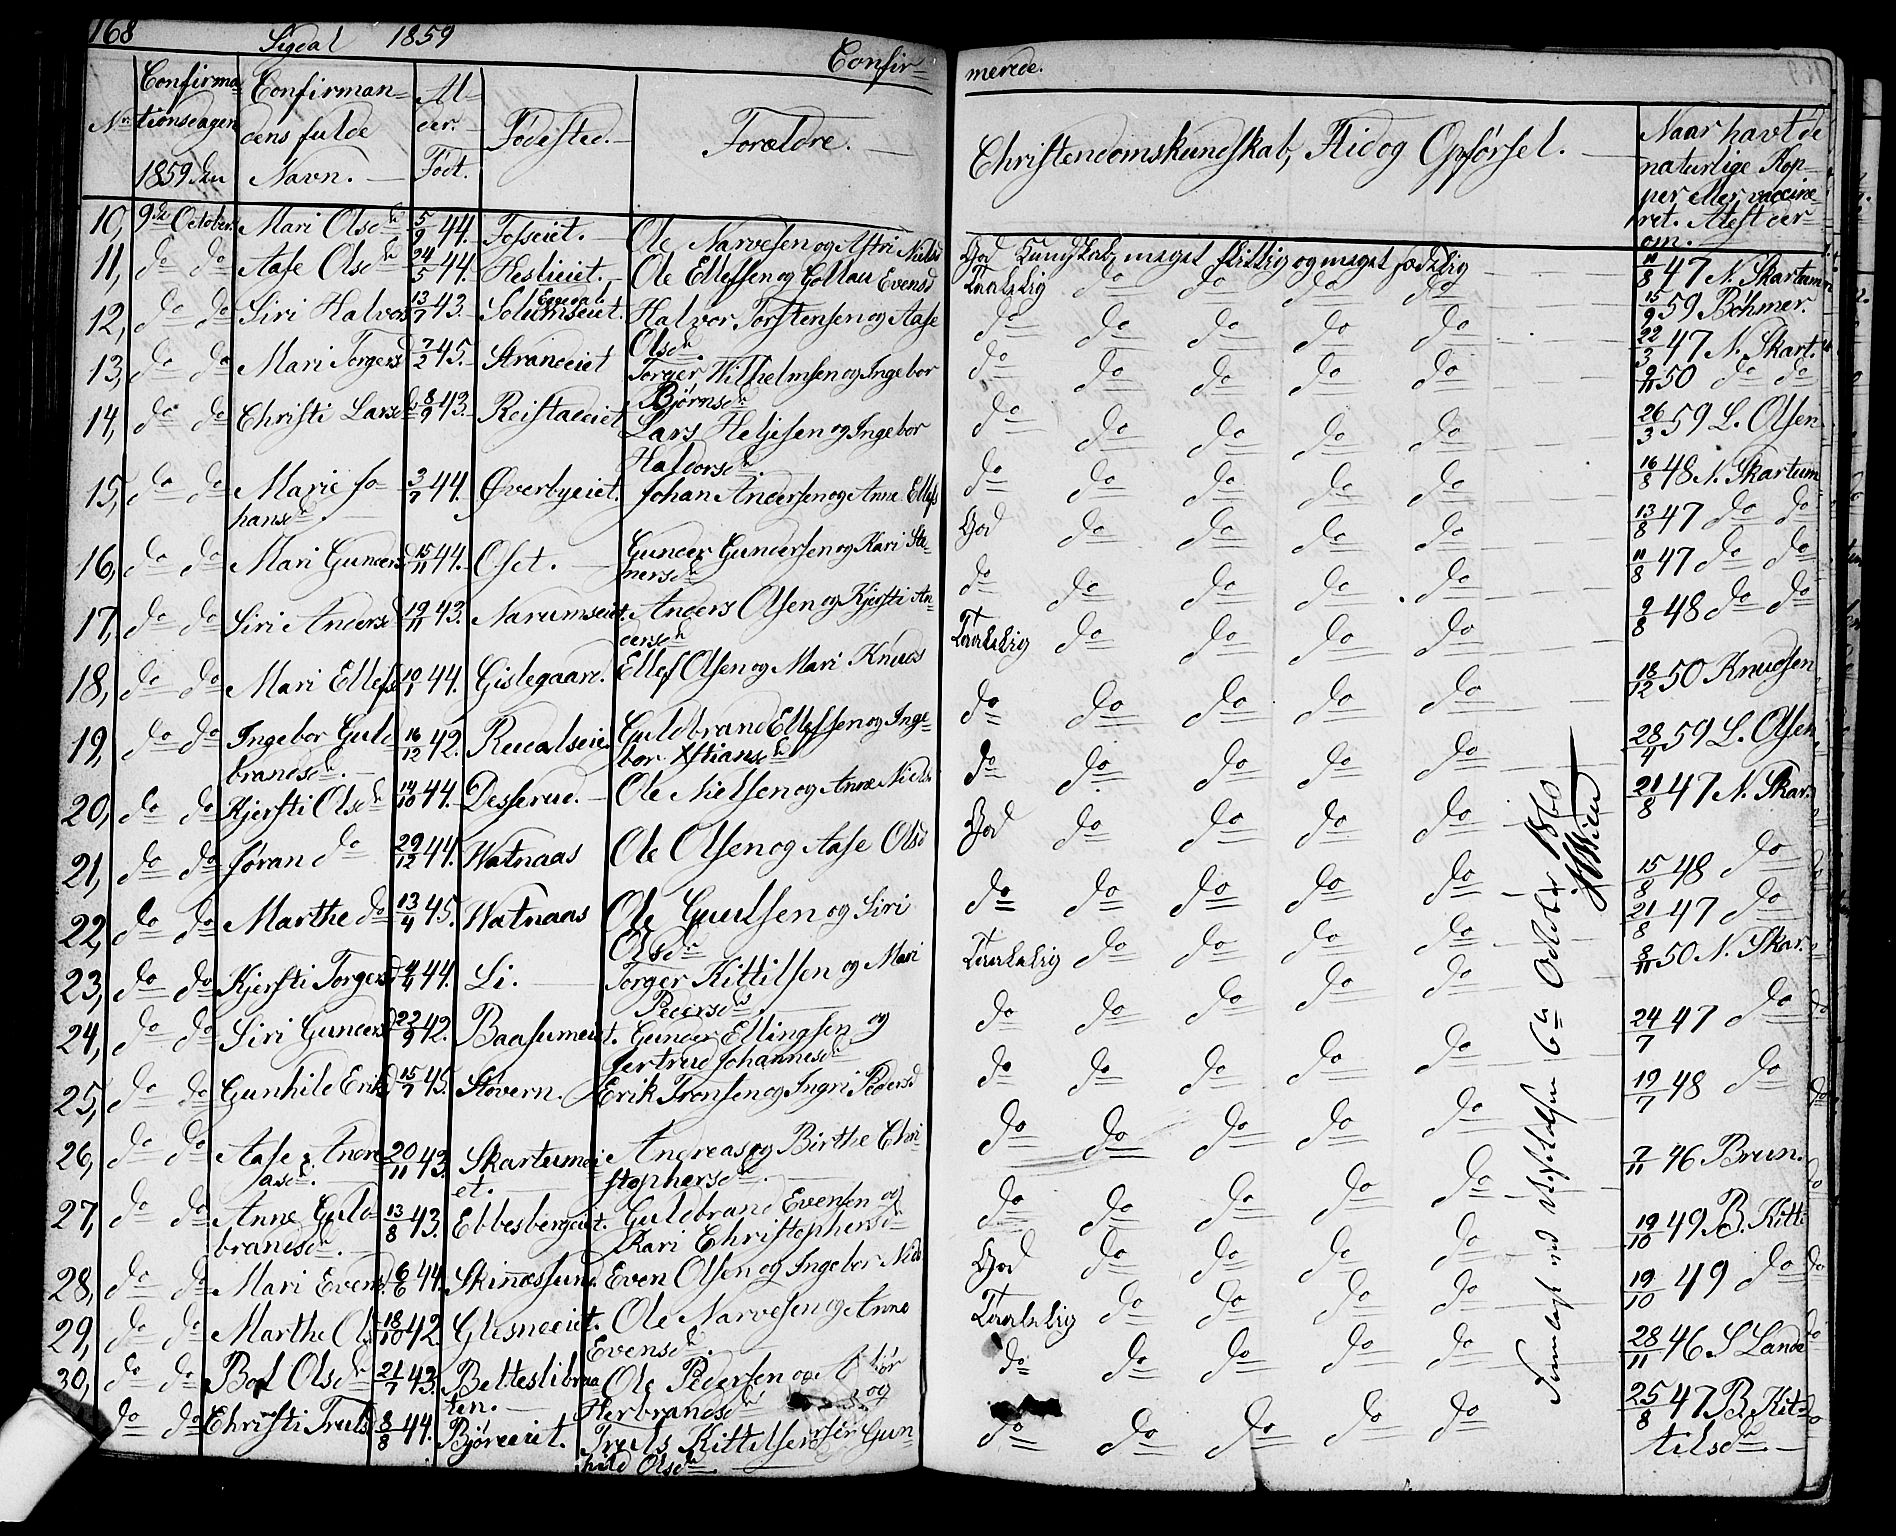 168 Sigdal 1859 Confir= merede.
Nr. Confirma=tionsdagen 1859 den
Confirman=dens fulde Navn.
Al=der. Födt.
Födested.
Forældre.
Christendomskundskab, Flid og Opförsel.
Naar havt de naturlige Kop=per eller vaccine ret. Atest der=om.
10, 9de October Mari Olsdr 5/9 44. Tosseiet. Ole Narvesen og Astri Nielsd God Kundskab, meget flittig og meget sædelig 11/8 47 N. Skartum
11, do do Aase Olsdr 24/5 44. Heslieiet. Ole Ellefsen og Gollau Evensd Taalelig do do do do 15/9 59 Böhmer.
12, do do Siri Halvors 13/7 43. Solumseiet Eggedal. Halvor Torstensen og Aase Olsdr. do do do do do 22/3 47 N. Skart.
13, do do Mari Torgersd 7/2 45. Strandeiet Torger Wilhelmsen og Ingebor Björnsdr do do do do do 9/11 50 do do
14, do do Christi Larsd 8/9 43. Reistadeiet Lars Heljesen og Ingebor Haldorsdr. do do do do do 26/3 59 L. Olsen
15, do do Marie Jo=hansdr. 3/7 44. Överbyeiet. Johan Andersen og Anne Ellefs do do do do do 16/8 48 N. Skartum
16, do do Mari Gunders 15/11 44. Oset. Gunder Gundersen og Kari Ste=nersdr God do do do do 13/8 47 do do
17, do do Siri Andersd 19/11 43. Narumseiet. Anders Olsen og Kjersti An=dersdr do do do do do 11/8 47 do do
18, do do Mari Ellefsd 10/1 44. Gislegaard. Ellef Olsen og Mari Knuds Taalelig do do do do 9/8 48 do do
19, do do Ingebor Guld=brandsdr. 16/12 42. Ruudlseie Guldbrand Ellefsen og Inge=bor Xstiansdr do do do do do 18/12 50 Knudsen
20, do do Kjersti Olsdr 14/10 44. Desserud. Ole Nielsen og Anne Niels do do do do do 28/4 59 L. Olsen
21, do do Jöran do 29/12 44. Watnaas Ole Olsen og Aase Olsd God do do do do 21/8 47 N. Skar.
22, do do Marthe do 13/4 45. Watnaas Ole Guulsen og Siri Olsdr do do do do do 15/8 48 do
23, do do Kjersti Torgersd 44. Li. Torger Kittilsen og Mari Pedersdr. Taalelig do do do do 21/8 47 do
24, do do Siri Gundersd 22/9 42. Baasumeiet. Gunder Ellingsen og Gertrud Johannesdr do do do do do 8/11 50 N. Skar.
25, do do Gunhild Eriks 15/7 45. Stovern. Erik Tronsen og Ingri Pedersd do do do do do 24/7 47 do
26, do do Aase Andre=asdr. 20/11 43. Skartumei=et. Andreas og Birthe Chri=stophersdr. do do do do do 19/7 48 do
27, do do Anne Guld=brandsdr. 13/8 43. Ebbesbergeiet. Guldbrand Evensen og Kari Christophersdr do do do do do 7/11 46 Brun.
28, do do Mari Evens 6/6 44. Skindssund. Even Olsen og Ingebor Nils God do do do do 19/10 49 B. Kitti
29, do do Marthe Ols 18/10 42. Glesneeiet. Ole Narvesen og Anne Evensdr. Taalelig do do do do 19/10 49 do
30, do do Olsdr 21/7 43. Betteslibraa=ten. Ole Pedersen og Herbrandsdr do do do do do 28/11 46 S Lande
do do Christi Truls 8/8 44. Björeeiet. Truls Kittelsen og Gun=hild Olsdr. do do do do do 25/8 47 B. Kit=tilsdr.
Fremlagt ved Visitatsen 6te October 1860